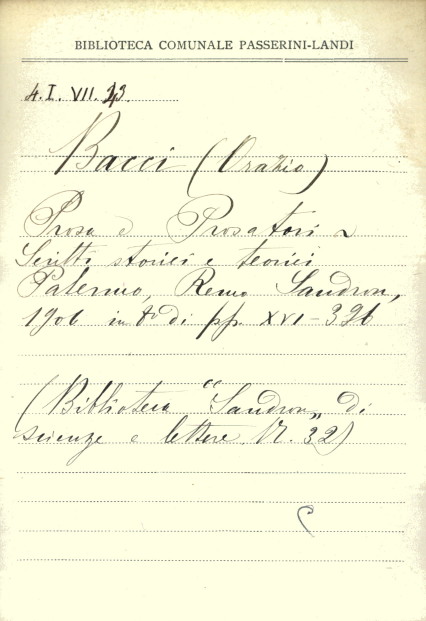 BIBLIOTECA COMUNALE PASSERINI-LANDI
4. I. VII. 23.
Bacci (Orazio)
Prosa e Prosatori ~
Scritti storici e teorici
Palermo, Remo Sandron,
1906 in 8º di pp. XVI-396
(Biblioteca "Sandron„ di
scienze e lettere. N. 32)
C